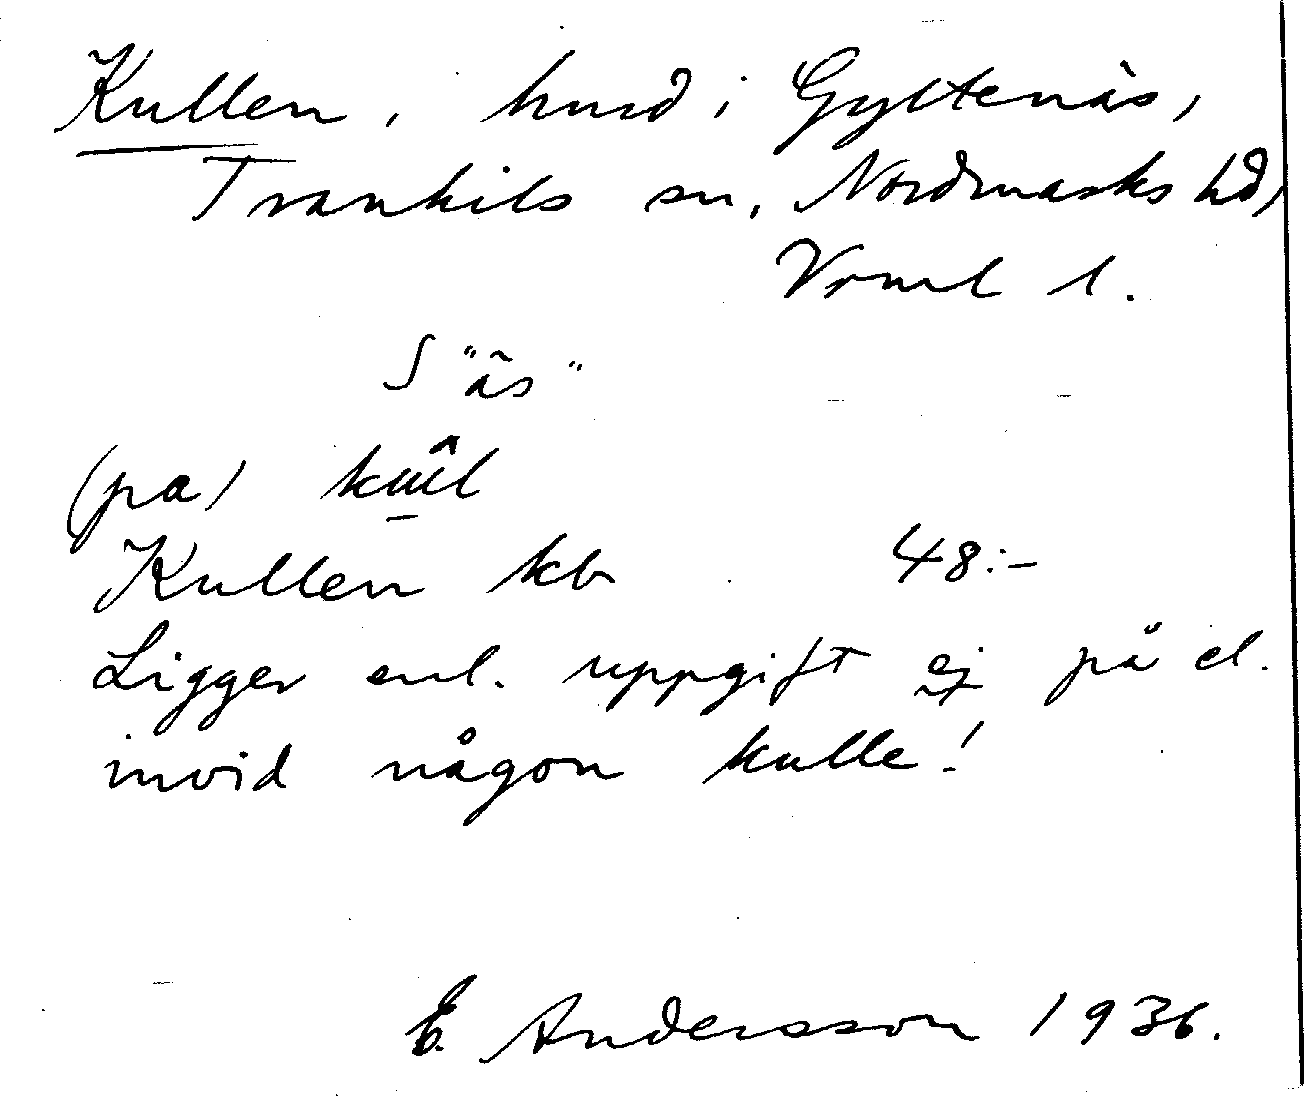 Kullen, hmd i Gyltenäs,
Trankils sn, Nordmarks hd,
Vrml l.
S "äs"
(pa) kɯ̂l
Kullen kb 48:-
Ligger enl. uppgift ej på el.
invid någon kulle!
E. Andersson 1936.